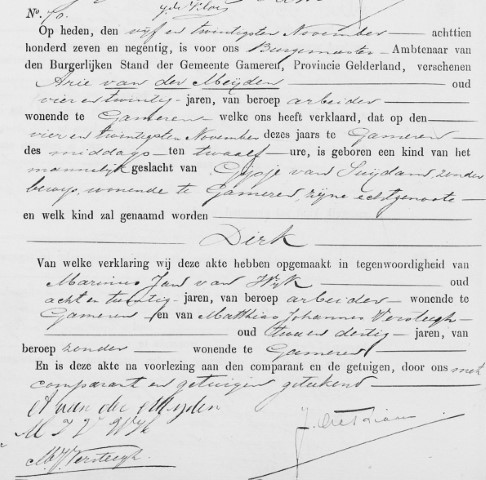 No. 70.
Op heden, den vijf en twintigsten November achttien
honderd zeven en negentig, is voor ons Burgemeester Ambtenaar van
den Burgerlijken Stand der Gemeente Gameren, Provincie Gelderland, verschenen
Arie van der Meijden oud
vier en twintig jaren, van beroep arbeider
wonende te Gameren welke ons heeft verklaard, dat op den
vier en twintigsten November dezes jaars te Gameren
des middags ten twaalf ure, is geboren een kind van het
mannelijk geslacht van van Suijdam, zonder
beroep, wonende te Gameren, zijne echtgenoote
en welk kind zal genaamd worden
Dirk
Van welke verklaring wij deze akte hebben opgemaakt in tegenwoordigheid van
Marinus Jan van Wijk oud
acht en twintig jaren, van beroep arbeider wonende te
Gameren en van Matthias Johannes Versteegh
oud twee en dertig jaren, van
beroep zonder wonende te Gameren
En is deze akte na voorlezing aan den comparant en de getuigen, door ons met
comparant en getuigen geteekend
A van der Meijden
M J V Wijk
M. J. Versteegh.